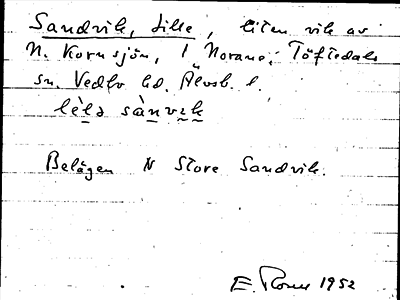 Sandvik, Lille, liten vik av
N. Kornsjön, i Norane, Töftedals
sn. Vedbo hd. Älvsb. l.
lèlə sànvɪk
Belägen N Store Sandvik.
E. 1952